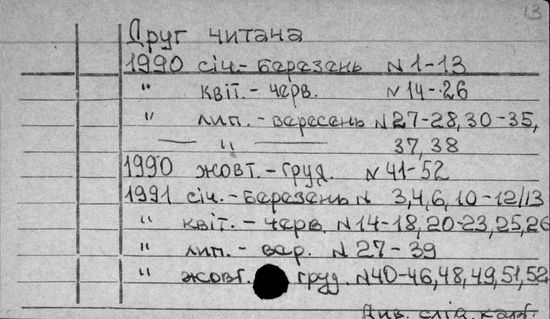 13
Друг читача
1990 січ.- березень N 1-13
" квіт.- черв. N 14-26
" лип.- вересень N 27-28, 30-35,
— " — 37, 38
1990 жовт.- груд. N 41-52
1991 січ.- березень N 3,4,6, 10-12/13
" квіт. - черв. N 14-18, 20-23, 25, 26
" лип. - вер. N 27-39
" жовт. груд. N 40-46, 48, 49, 51, 52
Див. слід. карт.